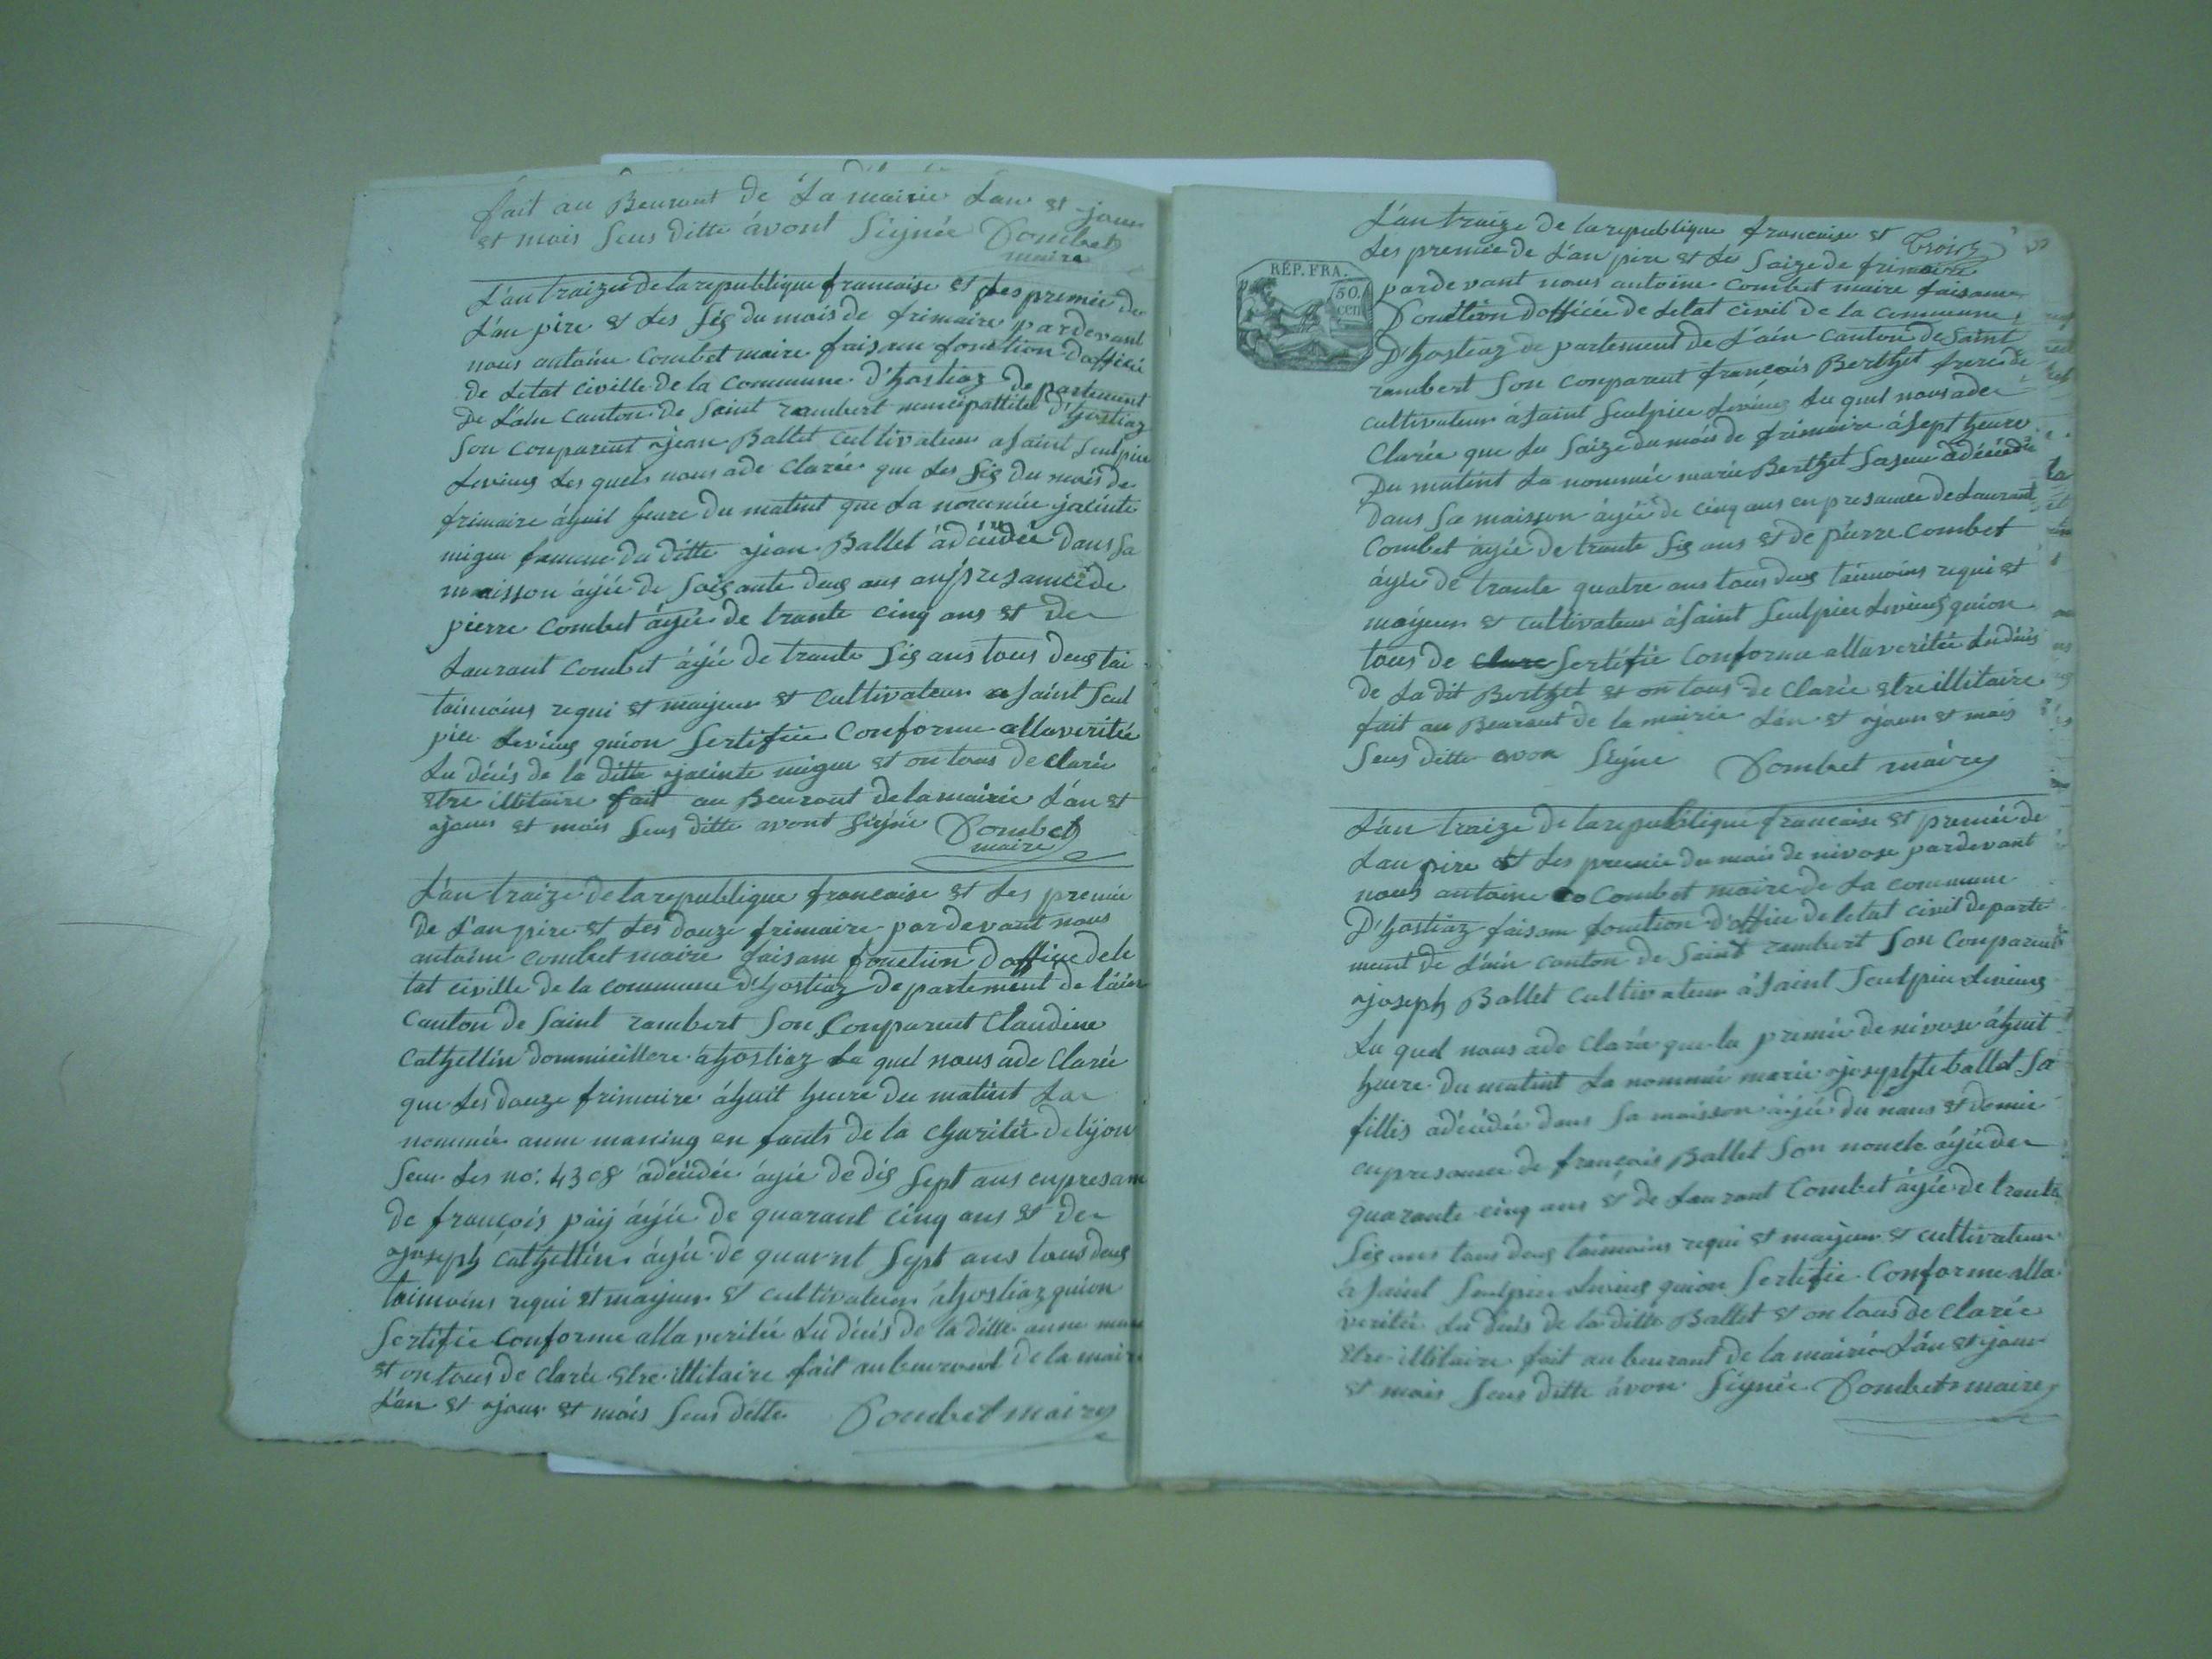 fait au Beuraut de La mairie Lan et jour
et mois seus ditte avont Signée Combet
maire
L'an traizee de la republique francaise et Les premie de
L'an pire et Les sis du mois de frimaire pardevant
nous antoine Combet maire faisan fonction d'officié
de Letat civille de la Commune d'hostiaz departement
De L'ain Canton de Saint rambert d'hostiaz
Son Conparent jean Ballet Cultivateur a Saint Seulpice
Levieus Les quels nous a de Clarée que Les sis du mois de
frimaire áhuil heure du matint que La nommée jacinte
migue famme du ditte jean Ballet adécédée dans sa
maisson ajée de soisante deus ans an presancé de
pierre Combet ájée de trante cinq ans et de
Laurant Combet ájée de trante sis ans tous deus tai
taimoins requi et majeur et Cultivateur a Saint Seul
pice Levieus quion Sertifiée Conforme alla veritée
Lu décés de la ditte jacinte migue et on tous de Clarée
etre illitaire fait au Beuraut de la mairie L'an et
jour et mois seus ditte avont Signée Combet
maire
L'an traize de la republique francaise et Les premie
de L'an pire et Les douze frimaire pardevant nous
antoine Combet maire faisam fonction d'officie de le
tat civille de la Commune d'hostiaz departement de l'áin
Canton de Saint rambert Son Conparent Claudine
Cathellin dommicillere ahostiaz Le quel nous a de Clarée
que Les douze frimaire áhuit heure du matint La
nommée anne maning en fants de la Charitée de lÿon
seu Les no: 4308 adécédée ajée de dis sept ans en presam
de françois páÿ ájée de quarant cinq ans et de
joseph Cathellin ájée de quarnt sept ans tous deus
taimoins requi et majeur et Cultivateur áhostiaz quion
Sertifie Conforme alla veritée Lu décés de la ditte anne man
et on tous de Clarée etre illitaire fait au beuraut de la mairi
L'an et jour et mois seus ditte Combet maire
L'an traize de la republique francaise et
Trois
Les premie de L'an pire et Le Saize de frimaire
RÉP. FRA.
50.
cent
pardevant nous antoine Combet maire faisam
Fonction d'officiée de Letat civil de la Commune
D'hostiaz departement de L'ain Canton de Saint
rambert Son Conparent françois Berthet frere de
cultivateur áSaint Seulpice Levieus Lu quel nous a de
Clarée que Lu Saize du mois de frimaire á sept heure
Du matint La nommée marie Berthet sa seur adécédée
dans sa maisson ájée de cinq ans en presance de Laurant
Combet ájée de trante sis ans et de piérre Combet
ájée de trante quatre ans tous deus taimoins requi et
majeur et Cultivateur áSaint Seulpice Levieus quion
tous de Clare Sertifie Conforme alla veritée Lu décés
de La dit Berthet et on tous de Clarée etre illitaire
fait au Beuraut de la mairie L'an et jour et mois
seus ditte avon Signe Combet maire
L'an traize de la republique francaise et premie de
L'an pire et Les premie du mois de nivose pardevant
nous antoine co Combet maire de La commune
D'hostiaz faisam fonction d'officie de letat civil departe
ment de L'ain canton de Saint rambert Son Conparent
joseph Ballet Cultivateur áSaint Seulpice Levieus
Lu quel nous a de Clarée que la premie de nivose áhuit
heure du matint La nommée marie josephte ballet sa
fillis adécédée dans sa maisson ájée du nans et demie
en presance de françois Ballet Son noncle ájée de
quarante cinq ans et de Laurant Combet ájée de trante
sis ans tous deus taimoins requi et majeur et cultivateur
áSaint Seulpice Levieus quion Sertifie Conforme alla
veritée Lu décés de la ditte Ballet et on tous de Clarée
etre illitaire fait au beuraut de la mairie L'an et jour
et mois seus ditte ávon Signée Combet maire